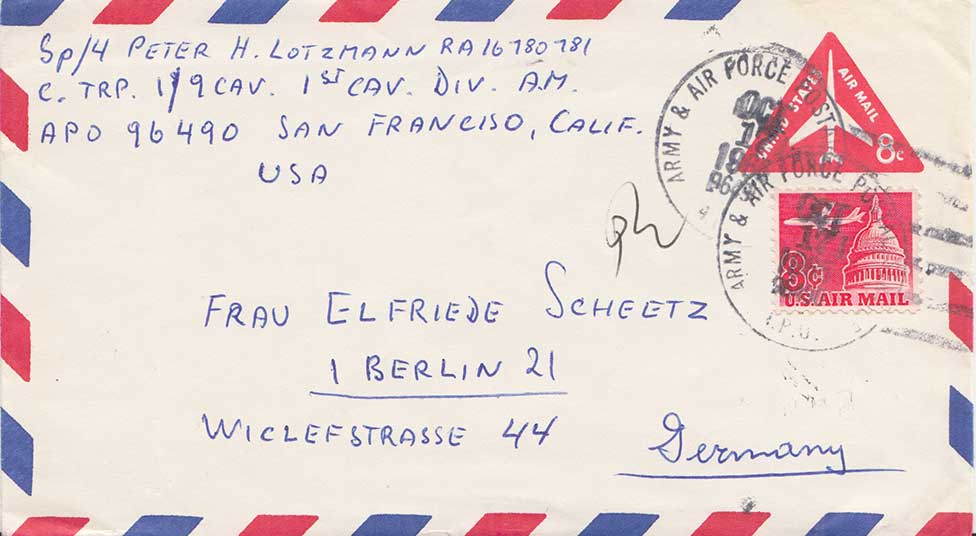 Sp/4 PETER H. LOTZMANN RA16780781
C. TRP. 1/9 CAV. 1ST CAV. DIV. A.M.
APO 96490 SAN FRANCISO, CALIF.
USA
ARMY & AIR FORCE POST
OCT
UNITED STATES AIR MAIL
8c
ARMY & AIR FORCE
OCT
A.P.O.
8¢
U.S. AIR MAIL
FRAU ELFRIEDE SCHEETZ
1 BERLIN 21
WICLEFSTRASSE 44
Germany